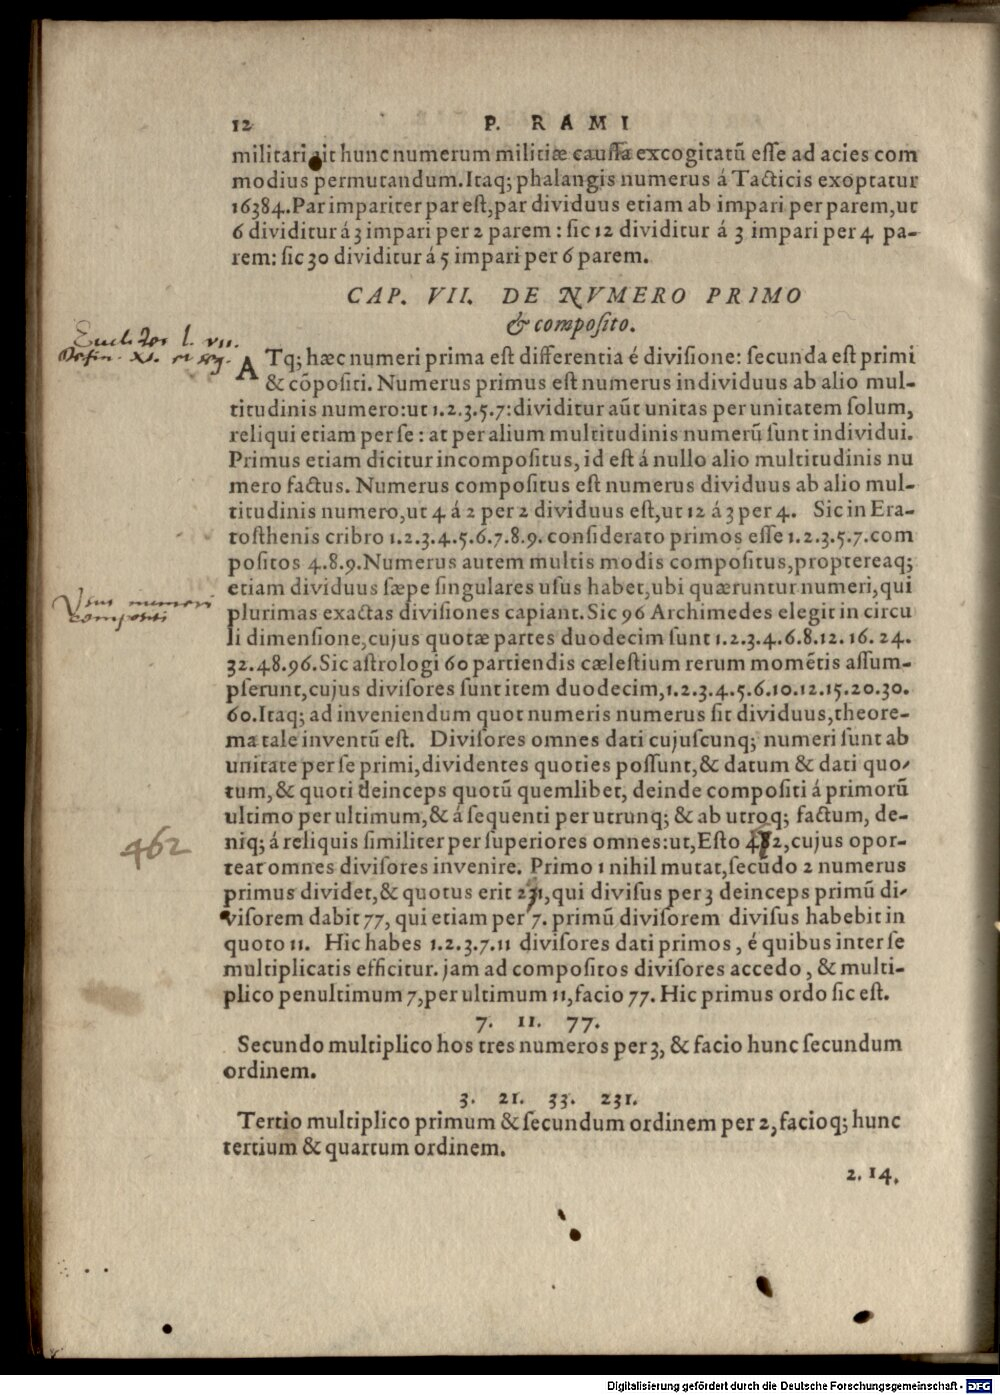 12 P. RAMI
militari ait hunc numerum militiæ caussa excogitatũ esse ad acies com
modius permutandum. Itaq; phalangis numerus á Tacticis exoptatur
16384. Par impariter par est, par dividuus etiam ab impari per parem, ut
6 dividitur á 3 impari per 2 parem: sic 12 dividitur á 3 impari per 4 pa-
rem: sic 30 dividitur á 5 impari per 6 parem.
CAP. VII. DE NVMERO PRIMO
& composito.
Euclides l. VII.
Defin. XI. et sq.
ATq; hæc numeri prima est differentia é divisione: secunda est primi
& cõpositi. Numerus primus est numerus individuus ab alio mul-
titudinis numero: ut 1.2.3.5.7: dividitur aũt unitas per unitatem solum,
reliqui etiam per se: at per alium multitudinis numerũ sunt individui.
Primus etiam dicitur incompositus, id est á nullo alio multitudinis nu
mero factus. Numerus compositus est numerus dividuus ab alio mul-
titudinis numero, ut 4 á 2 per 2 dividuus est, ut 12 á 3 per 4. Sic in Era-
tosthenis cribro 1.2.3.4.5.6.7.8.9. considerato primos esse 1.2.3.5.7. com
positos 4.8.9. Numerus autem multis modis compositus, proptereaq;
etiam dividuus sæpe singulares usus habet, ubi quæruntur numeri, qui
Usus numeri
compositi
plurimas exactas divisiones capiant. Sic 96 Archimedes elegit in circu
li dimensione, cujus quotæ partes duodecim sunt 1.2.3.4.6.8.12.16.24.
32.48.96. Sic astrologi 60 partiendis cælestium rerum momẽtis assum-
pserunt, cujus divisores sunt item duodecim, 1.2.3.4.5.6.10.12.15.20.30.
60. Itaq; ad inveniendum quot numeris numerus sit dividuus, theore-
ma tale inventũ est. Divisores omnes dati cujuscunq; numeri sunt ab
unitate per se primi, dividentes quoties possunt, & datum & dati quo-
tum, & quoti deinceps quotũ quemlibet, deinde compositi á primorũ
ultimo per ultimum, & á sequenti per utrunq; & ab utroq; factum, de-
462
niq; á reliquis similiter per superiores omnes: ut, Esto 462, cujus opor-
teat omnes divisores invenire. Primo 1 nihil mutat, secũdo 2 numerus
primus dividet, & quotus erit 231, qui divisus per 3 deinceps primũ di-
visorem dabit 77, qui etiam per 7. primũ divisorem divisus habebit in
quoto 11. Hic habes 1.2.3.7.11 divisores dati primos, é quibus inter se
multiplicatis efficitur. jam ad compositos divisores accedo, & multi-
plico penultimum 7, per ultimum 11, facio 77. Hic primus ordo sic est.
7. 11. 77.
Secundo multiplico hos tres numeros per 3, & facio hunc secundum
ordinem.
3. 21. 33. 231.
Tertio multiplico primum & secundum ordinem per 2, facioq; hunc
tertium & quartum ordinem.
2. 14.
Digitalisierung gefördert durch die Deutsche Forschungsgemeinschaft - DFG